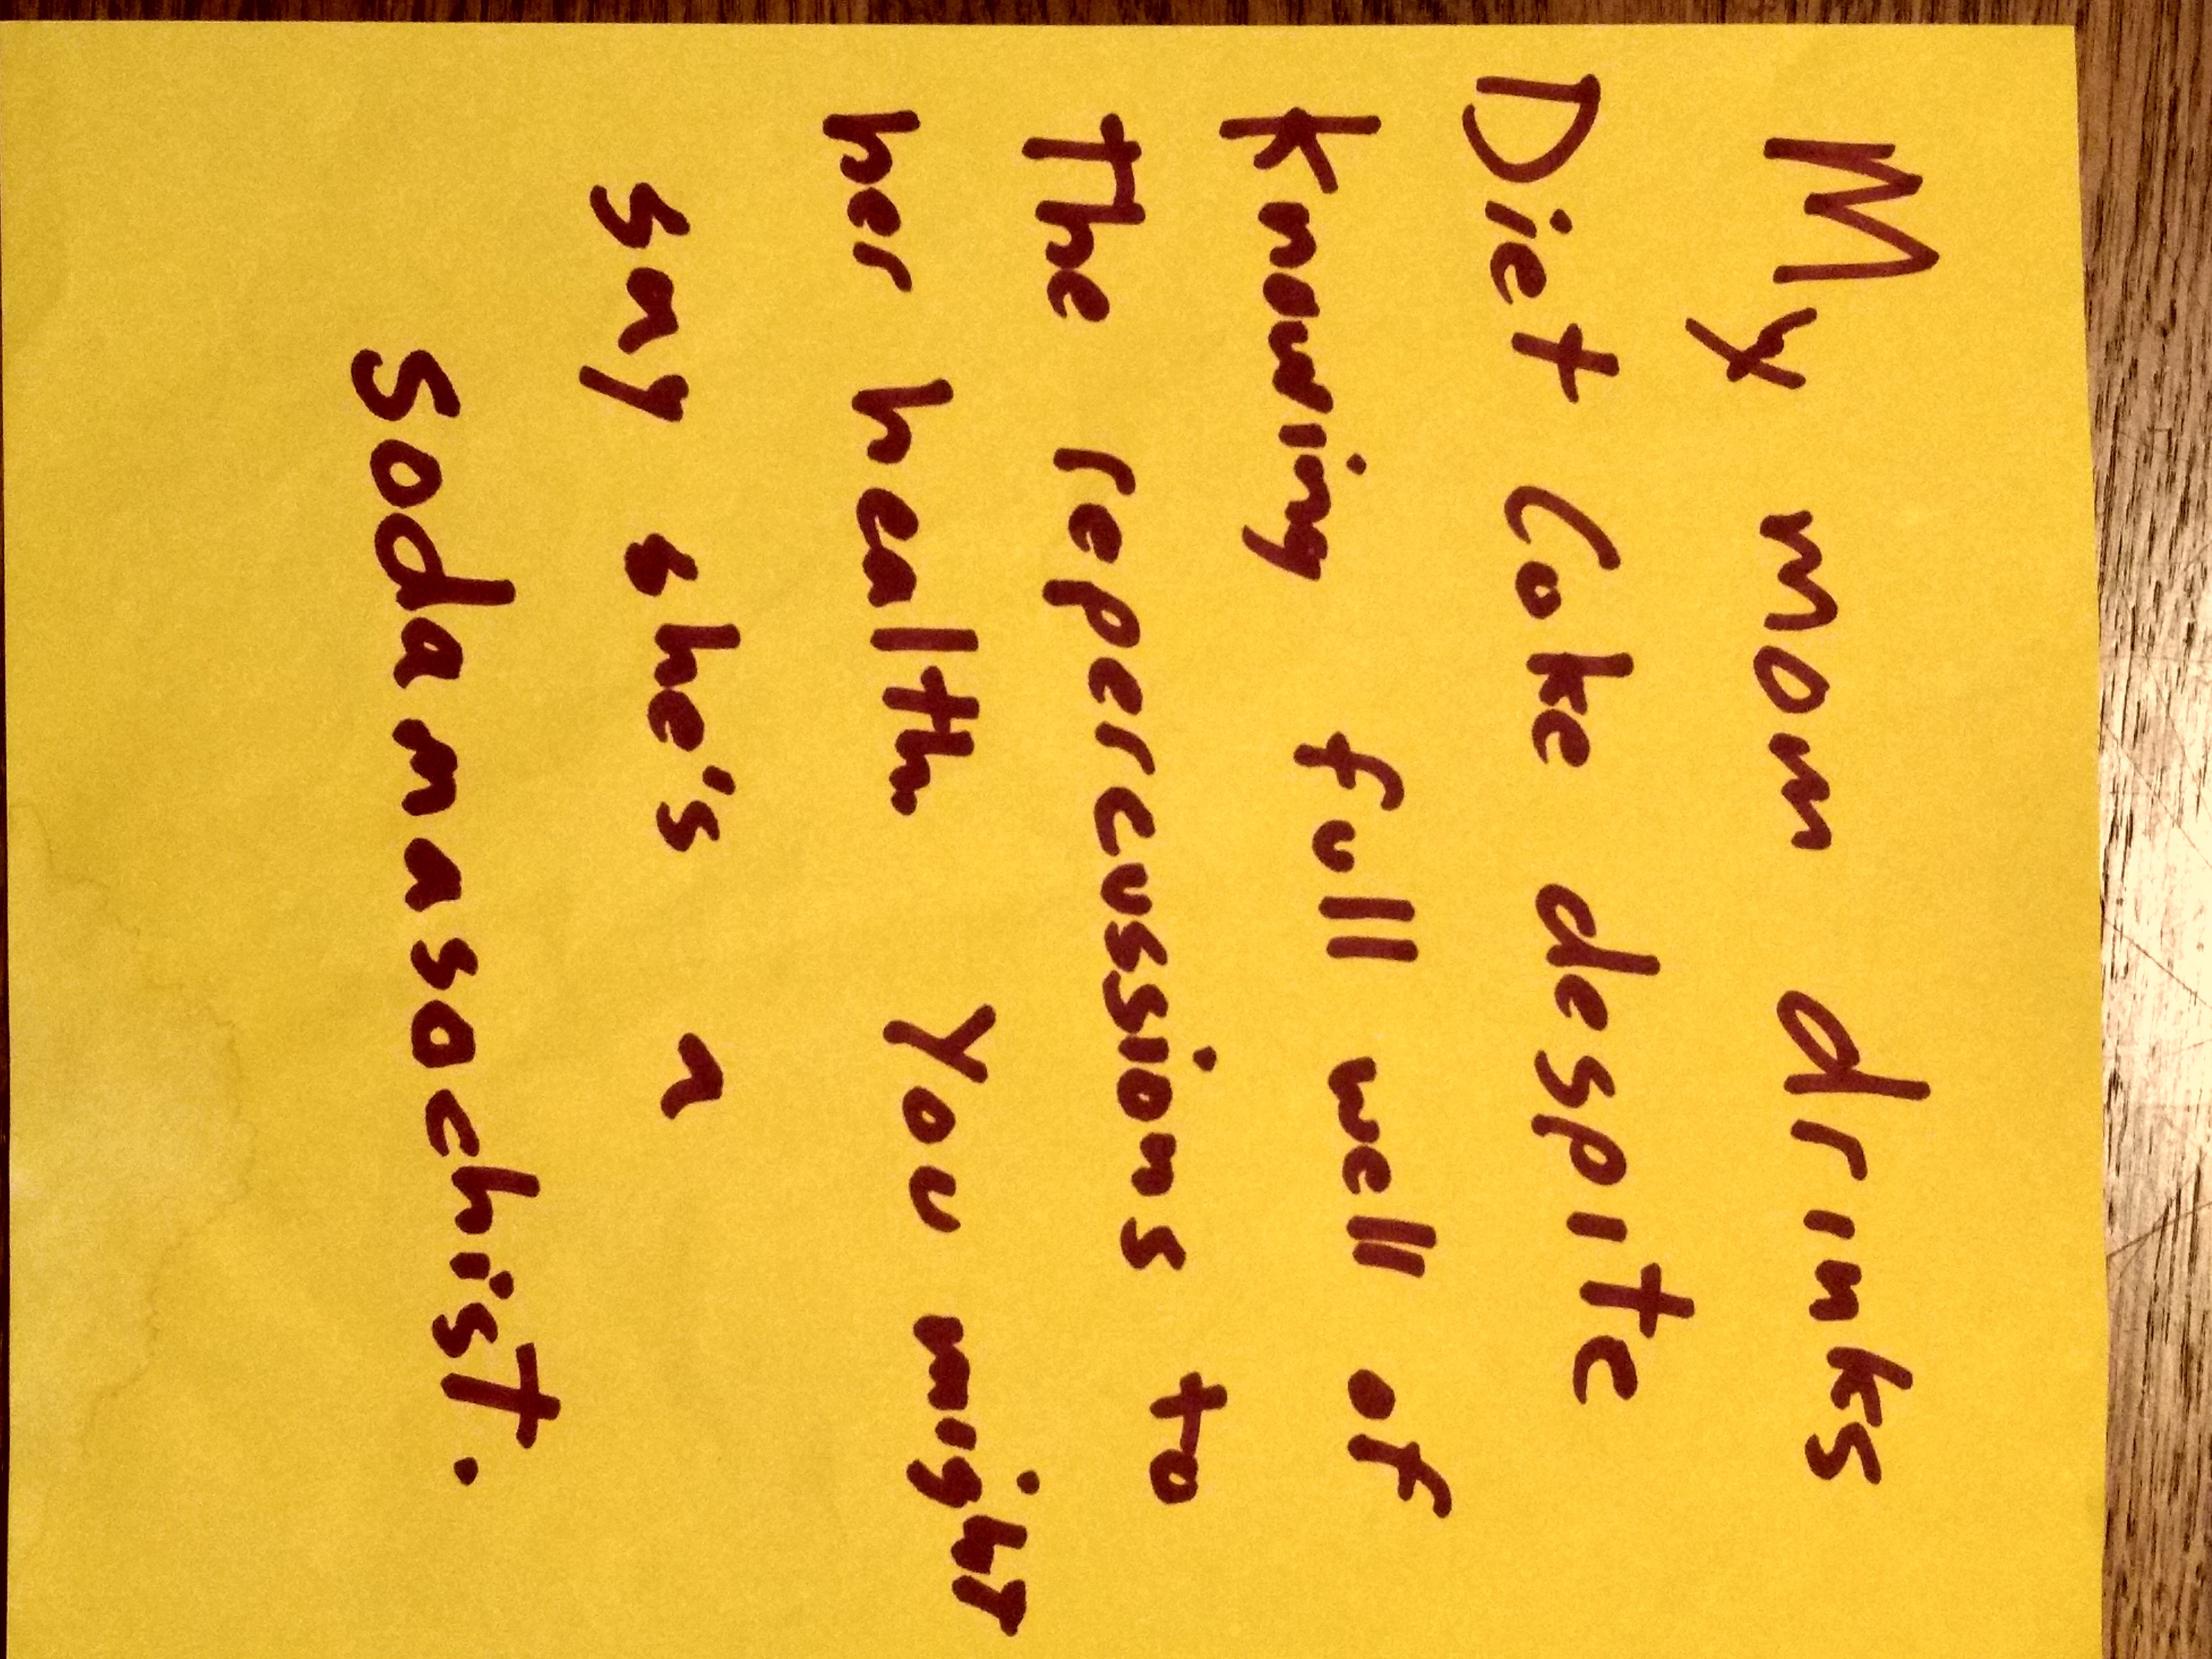 My mom drinks
Diet Coke despite
Knowing full well of
the repercussions to
her health You might
say she's a
sodamasochist.